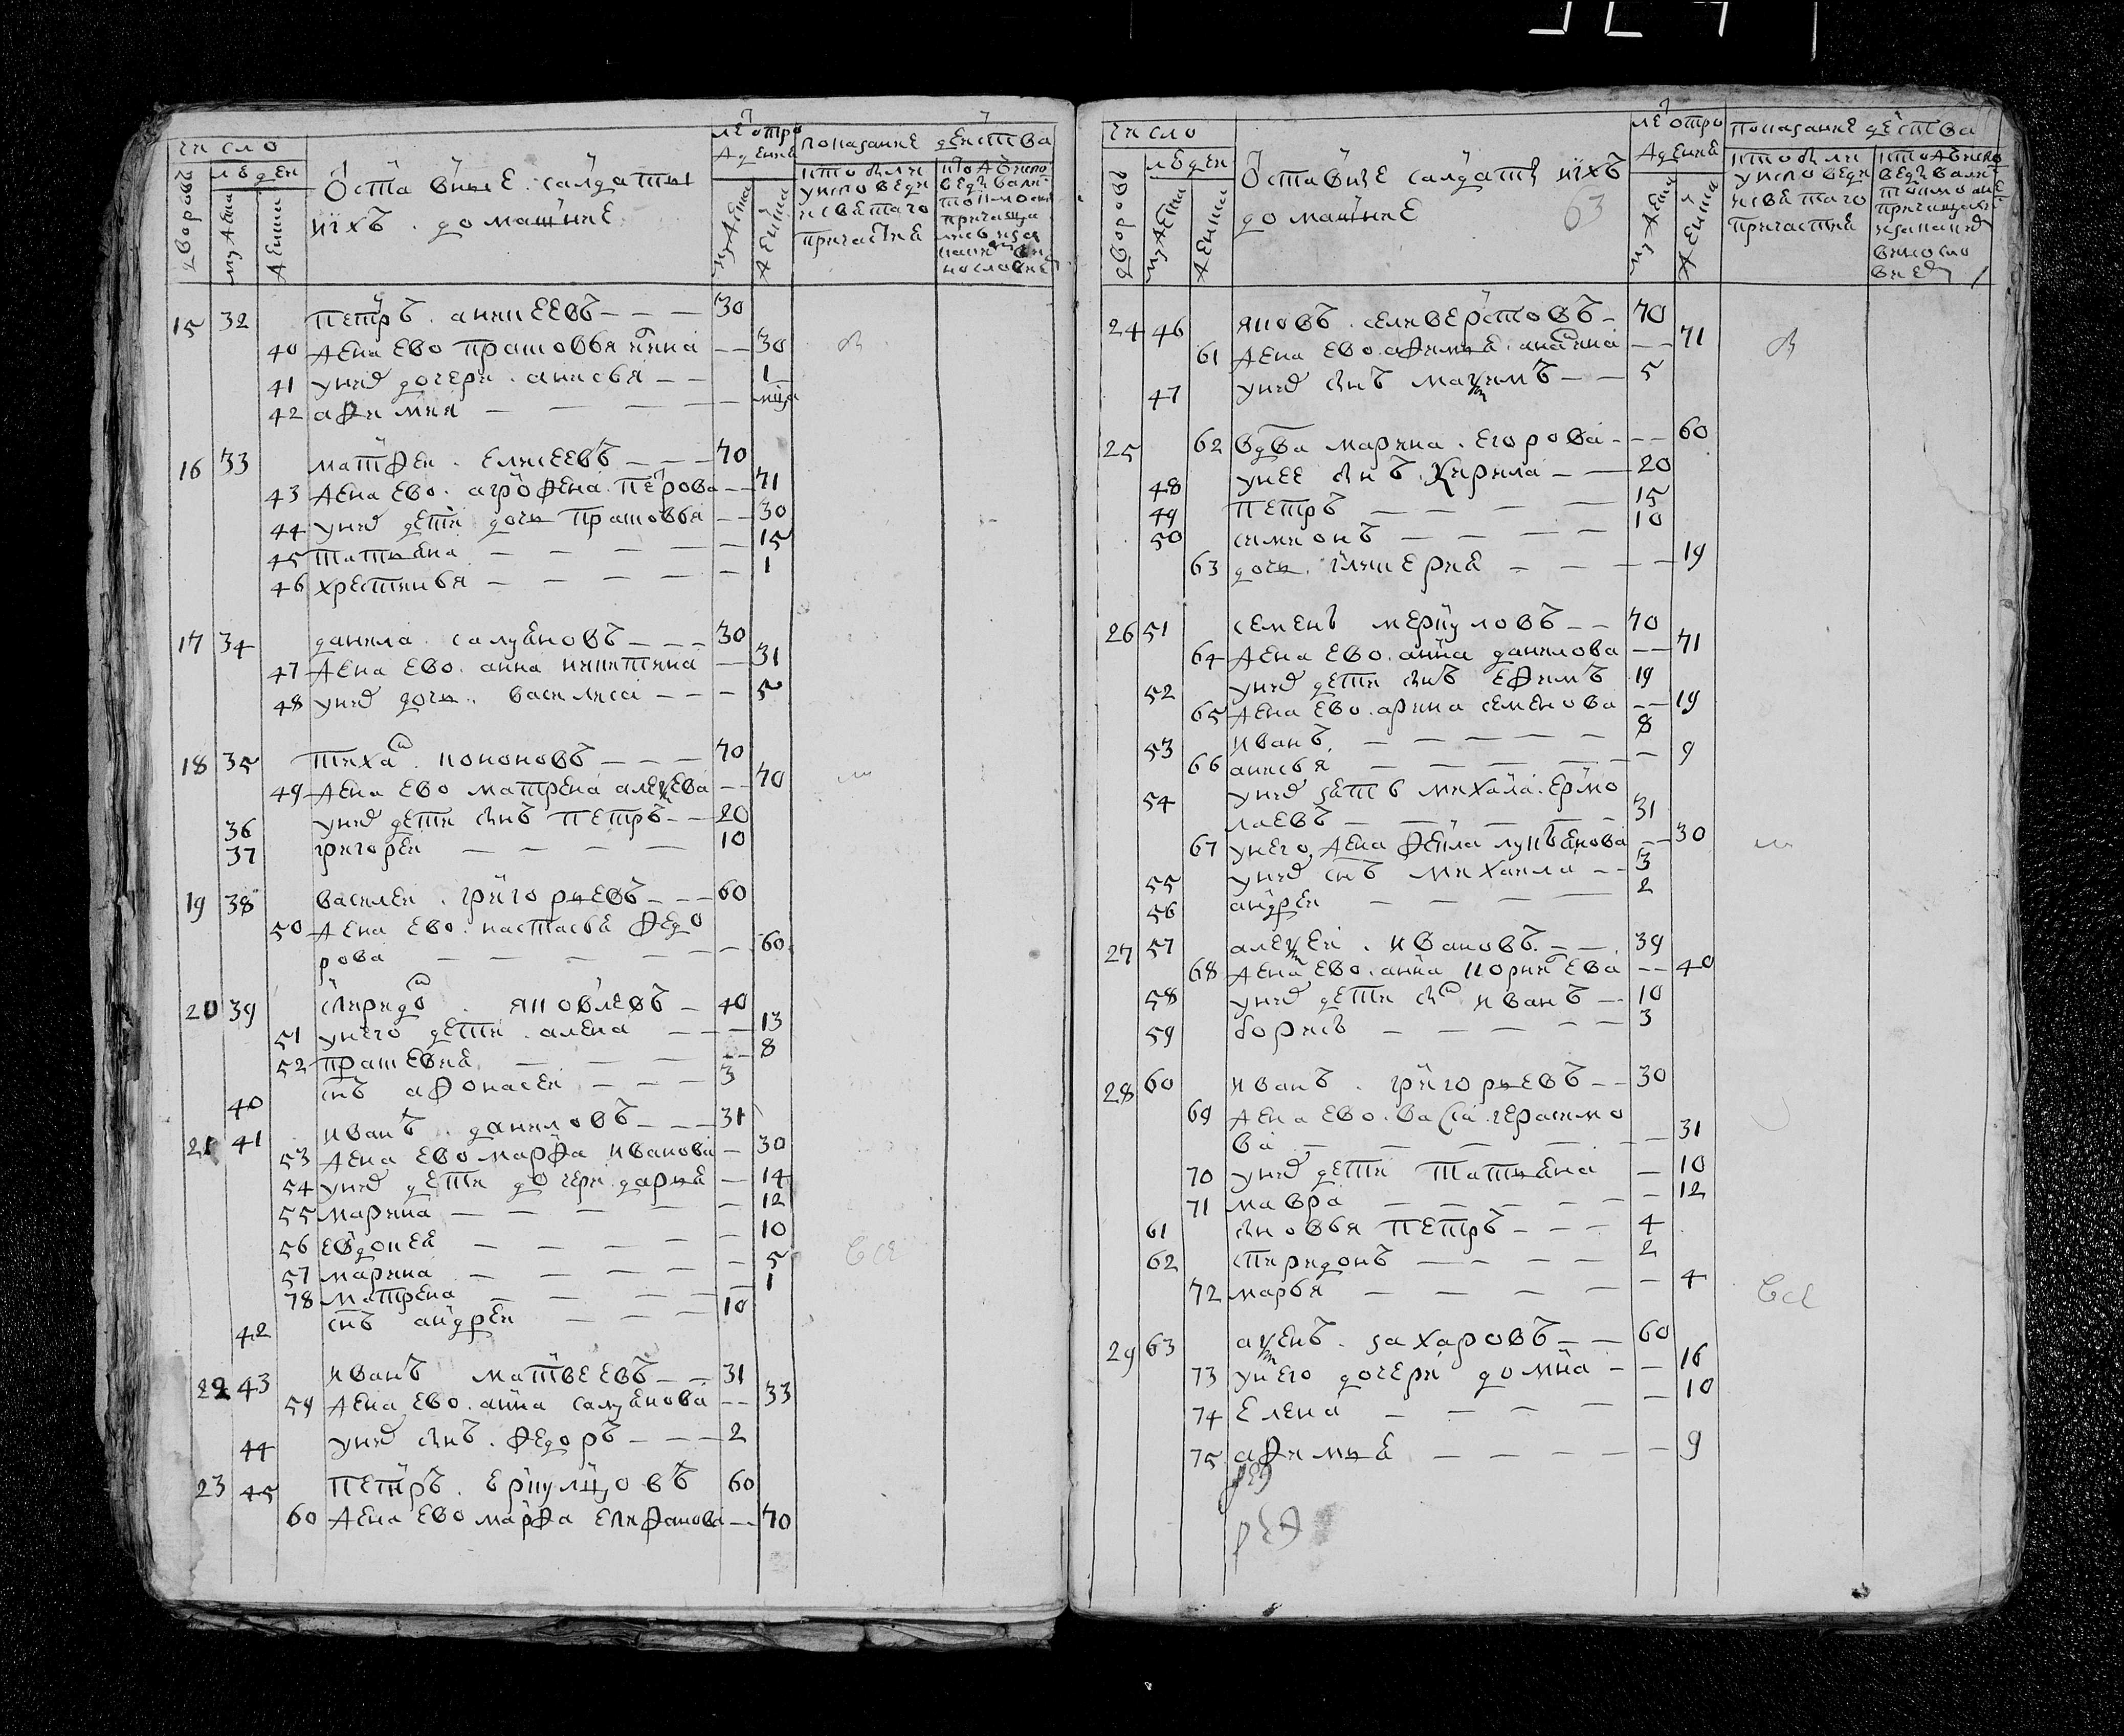 число
лѣ отро
показание дѣиства
людеи
ждения
Оставные салдаты
ихъ домашние
дворовъ
мужска
женска
мужска
женска
кто были
у исповеди
и святаго
причастия
15 32 петръ аникеевъ 30
40 жена ево прасковья 30
41 у них дочери анисья 1
42 афимия мца
16 33 матфеи елисеевъ 70
43 жена ево агрофена петрова 71
44 у них дети дочь прасковья 30
45 татьяна 15
46 христинья 1
17 34 данила салуяновъ 30
47 жена ево анна никитина 31
48 у них дочь василиса 5
18 35 тихан кононовъ 70
49 жена ево матрена алексева 70
36 у них дети снъ петръ 20
37 григореи 10
19 38 василеи григорьевъ 60
50 жена ево настасья федо
рова 60
20 39 спиридон яковлевъ 40
51 у него дети алена 13
52 прасковия 8
40 снъ афонасеи 3
21 41 иванъ даниловъ 31
53 жена ево марфа иванова 30
54 у них дети дочери дарья 14
55 марина 12
56 евдокея 10
57 марина 5
78 матрена 1
42 снъ андреи 10
все
22 43 иванъ матвеевъ 31
59 жена ево анна салуянова 33
44 у них снъ федоръ 2
23 45 петръ 60
60 жена ево марфа елифанова 70
число
лѣ отро
показание дѣиства
людеи
ждения
Оставные салдаты ихъ
домашние
63
дворовъ
мужска
женска
мужска
женска
кто были
у исповеди
и святаго
причастия
24 46 яковъ селиверстовъ 70
61 жена ево афимья 71
47 у них снъ максимъ 5
25 62 вдва марина егорова 60
48 у нее снъ кирила 20
49 петръ 15
50 симионъ 10
63 дочь гликерия 19
26 51 семенъ меркуловъ 70
64 жена ево анна данилова 71
52 у них дети снъ ефимъ 19
65 жена ево арина семенова 19
53 иванъ 8
66 анисья 9
54 у них зять михаила ермо
лаевъ 31
67 у него жена фекла лукьянова 30
55 у них снъ михаила 3
56 андреи 2
27 57 алексеи ивановъ 39
68 жена ево анна корнеева 40
58 у них дети снъ иванъ 10
59 борисъ 3
28 60 иванъ григорьевъ 30
69 жена ево васса герасимо
ва 31
70 у них дети татьяна 10
71 мавра 12
61 сновья петръ 4
62 спиридонъ 2
72 марья 4
все
29 63 аксенъ захаровъ 60
73 у него дочери домна 16
74 елена 10
75 афимья 9